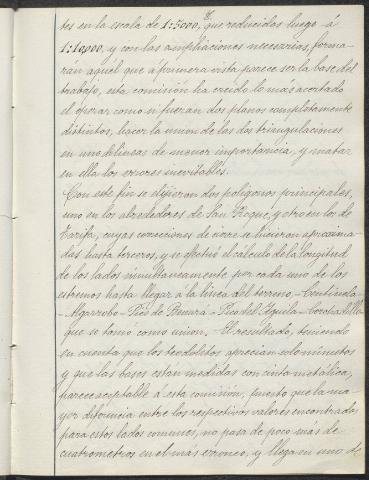 tes en la escala de 1:5000, que reducidos luego á
1:10,000, y con las ampliaciones necesarias, forma-
rán aquél que á primera vista parece ser la base del
trabajo, esta comisión ha creido lo más acertado
el óperar como si fueran dos planos completamente
distintos, hacer la union de las dos triangulaciones
en una ó lineas de menor importancia, y matar
en ella los errores inevitables.
Con este fin se elijieron dos polígonos principales,
uno en los alrededores de San Roque, y otro en los de
Tarifa, cuyas correcciones de cierre se hicieron aproxima-
das hasta terceros, y se efectuó el cálculo de la longitud
de los lados simultaneamente por cada uno de los
estremos hasta llegar á la línea del terreno, - Centinela -
- Algarrobo - Pico de - Pico del Aguila -
que se tomó como unión. El resultado, teniendo
en cuenta que los teodolitos aprecian solo minutos
y que las bases están medidas con cinta metálica,
parece aceptable á esta comisión, puesto que la ma-
yor diferencia entre los respectivos valores encontrados
para estos lados comunes, no pasa de poco más de
cuatro metros en el más erroneo, y llega en uno de